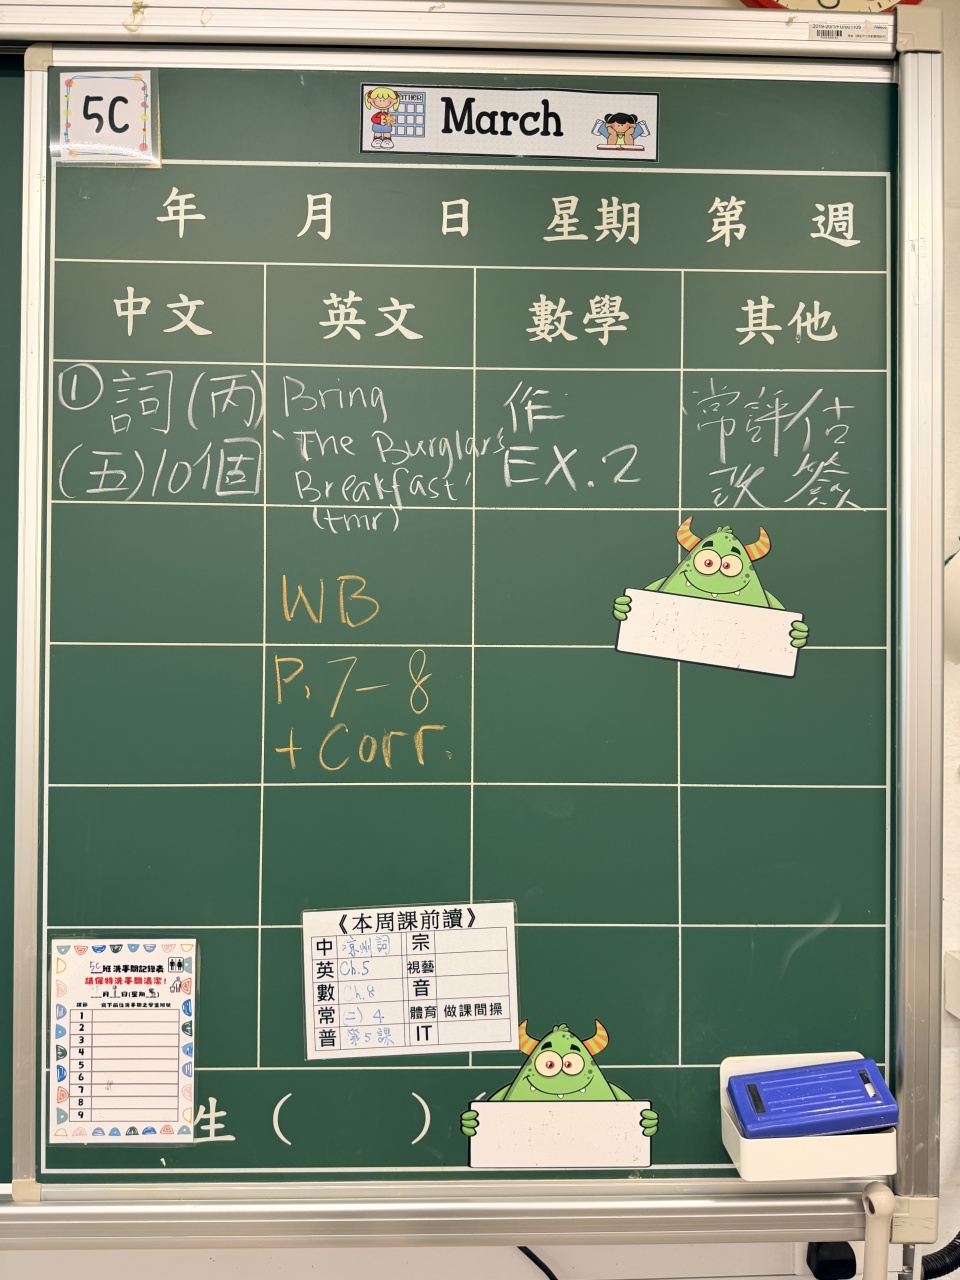 5C
March
年 月 日 星期 第 週
中文 英文 數學 其他
① 詞(丙)
(五)10個
Bring
'The Burglar's
Breakfast'
(tmr)
WB
P.7-8
+ Corr.
作
EX.2
常評估
改簽
《本周課前讀》
中 涼州詞 宗
英 Ch.5 視藝
數 Ch.8 音
常 (二)4 體育 做課間操
普 第5課 IT
5C班洗手間記錄表
請保持洗手間清潔!
月 日(星期 )
1
2
3
4
5
6
7
8
9
生 ( )